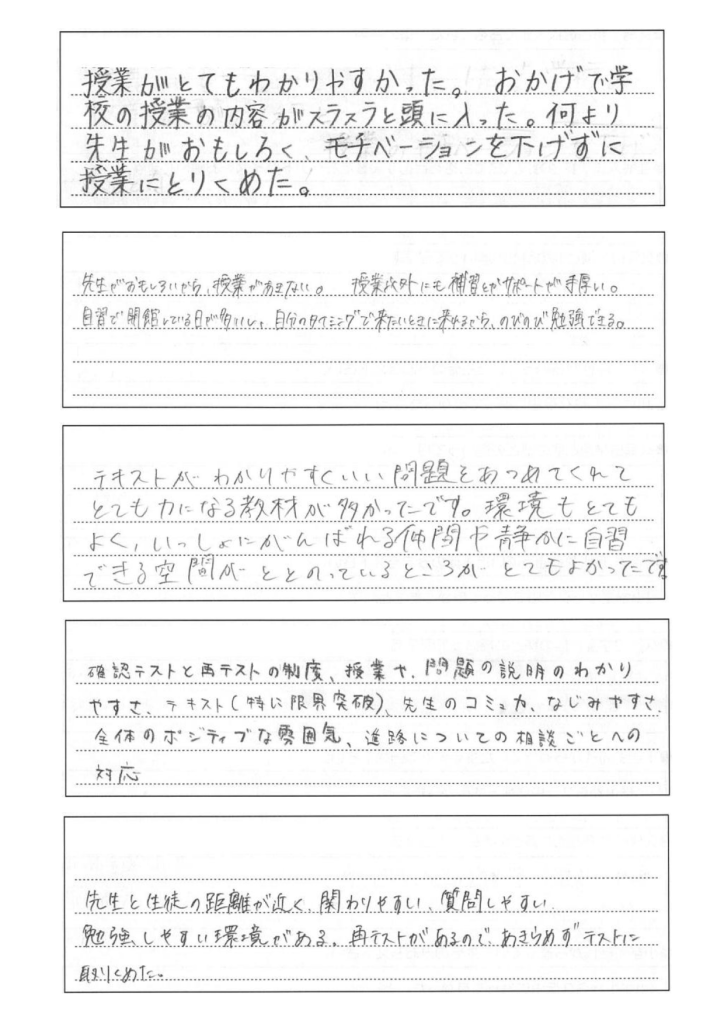 授業がとてもわかりやすかった。 おかげで学
校の授業の内容がスラスラと頭に入った。何より
先生がおもしろく、モチベーションを下げずに
授業にとりくめた。
先生がおもしろいから、授業があきない。 授業以外にも補習とかサポートが手厚い。
自習で開館している日が多いし、自分のタイミングで来たいときに来れるから、のびのび勉強できる。
テキストがわかりやすくいい問題をあつめてくれて
とても力になる教材が多かったです。環境もとても
よく、いっしょにがんばれる仲間や静かに自習
できる空間がととのっているところがとてもよかったです。
確認テストと再テストの制度、授業や、問題の説明のわかり
やすさ、テキスト(特に限界突破)、先生のコミュ力、なじみやすさ、
全体のポジティブな雰囲気、進路についての相談ごとへの
対応
先生と生徒の距離が近く、関わりやすい、質問しやすい
勉強しやすい環境がある。再テストがあるので、あきらめずテストに
取りくめた。